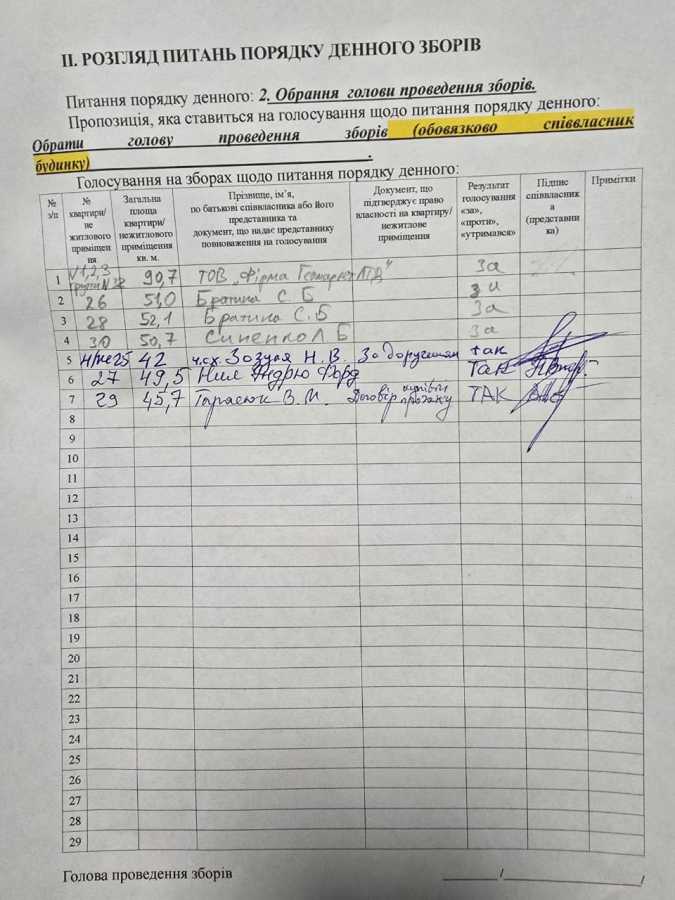 ІІ. РОЗГЛЯД ПИТАНЬ ПОРЯДКУ ДЕННОГО ЗБОРІВ
Питання порядку денного: 2. Обрання голови проведення зборів.
Пропозиція, яка ставиться на голосування щодо питання порядку денного:
Обрати голову проведення зборів (обовязково співвласник
будинку)____________________.
Голосування на зборах щодо питання порядку денного:
№ з/п № квартири/ не житлового приміщен ня Загальна площа квартири/ нежитлового приміщення кв. м. Прізвище, ім’я, по батькові співвласника або його представника та документ, що надає представнику повноваження на голосування Документ, що підтверджує право власності на квартиру/ нежитлове приміщення Результат голосування «за», «проти», «утримався» Підпис співвласник а (представни ка) Примітки
1 1,2,3 групи N 90,7 ТОВ „Фірма ЛТД" За
2 26 51,0 Братина С. Б За
3 28 52,1 Братина С. Б За
4 30 50,7 Синенко Л Б За
5 25 42 Зозуля Н. В. За дорученням так
6 27 49,5 Нил Эндрю Форд Так
7 29 45,7 Тарасюк В. М. Договір купівлі продажу ТАК
8
9
10
11
12
13
14
15
16
17
18
19
20
21
22
23
24
25
26
27
28
29
Голова проведення зборів ________ /____________________/